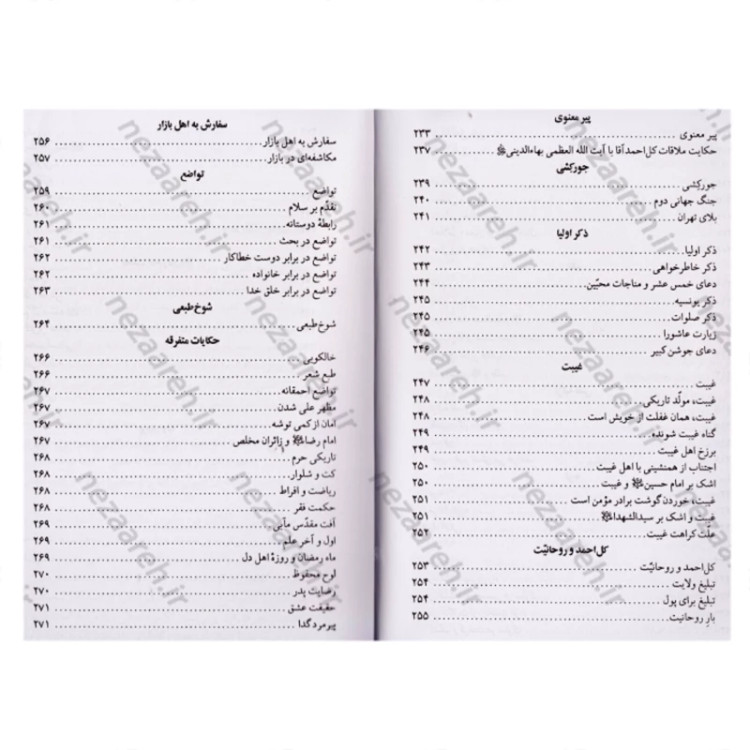 پیر معنوی
پیر معنوی ........ ۲۳۳
حکایت ملاقات کل‌احمدآقا با آیت الله العظمی بهاءالدینی ........ ۲۳۷
جورکِشی
جورکِشی ........ ۲۳۹
جنگ جهانی دوم ........ ۲۴۰
بلای تهران ........ ۲۴۱
ذکر اولیا
ذکر اولیا ........ ۲۴۲
ذکر خاطرخواهی ........ ۲۴۳
دعای خمس عشر و مناجات محبّین ........ ۲۴۴
ذکر یونسیه ........ ۲۴۵
ذکر صلوات ........ ۲۴۵
زیارت عاشورا ........ ۲۴۵
دعای جوشن کبیر ........ ۲۴۶
غیبت
غیبت ........ ۲۴۷
غیبت، مولّد تاریکی ........ ۲۴۸
غیبت، همان غفلت از خویش است ........ ۲۴۸
گناه غیبت شونده ........ ۲۴۹
برزخ اهل غیبت ........ ۲۴۹
اجتناب از همنشینی با اهل غیبت ........ ۲۵۰
اشک بر امام حسین و غیبت ........ ۲۵۰
غیبت، خوردن گوشت برادر مؤمن است ........ ۲۵۱
غیبت و اشک بر سیدالشهدا ........ ۲۵۱
علّت کراهت غیبت ........ ۲۵۲
کل‌احمد و روحانیّت
کل‌احمد و روحانیّت ........ ۲۵۳
تبلیغ ولایت ........ ۲۵۴
تبلیغ برای پول ........ ۲۵۴
بارِ روحانیت ........ ۲۵۵
سفارش به اهل بازار
سفارش به اهل بازار ........ ۲۵۶
مکاشفه‌ای در بازار ........ ۲۵۷
تواضع
تواضع ........ ۲۵۹
تقدّم بر سلام ........ ۲۶۰
رابطهٔ دوستانه ........ ۲۶۱
تواضع در بحث ........ ۲۶۱
تواضع در برابر دوست خطاکار ........ ۲۶۲
تواضع در برابر خانواده ........ ۲۶۲
تواضع در برابر خلق خدا ........ ۲۶۳
شوخ‌طبعی
شوخ‌طبعی ........ ۲۶۴
حکایات متفرقه
خالکوبی ........ ۲۶۶
طبع شعر ........ ۲۶۶
تواضع احمقانه ........ ۲۶۷
مظهر علی شدن ........ ۲۶۷
امان از کمی توشه ........ ۲۶۷
امام رضا و زائران مخلص ........ ۲۶۷
تاریکی حرم ........ ۲۶۸
کت و شلوار ........ ۲۶۸
ریاضت و افراط ........ ۲۶۸
حکمت فقر ........ ۲۶۸
آفت مقدّس مآبی ........ ۲۶۹
اول و آخر علم ........ ۲۶۹
ماه رمضان و روزهٔ اهل دل ........ ۲۶۹
لوح محفوظ ........ ۲۷۰
رضایت پدر ........ ۲۷۰
حقیقت عشق ........ ۲۷۱
پیرمرد گدا ........ ۲۷۱
nezaareh.ir